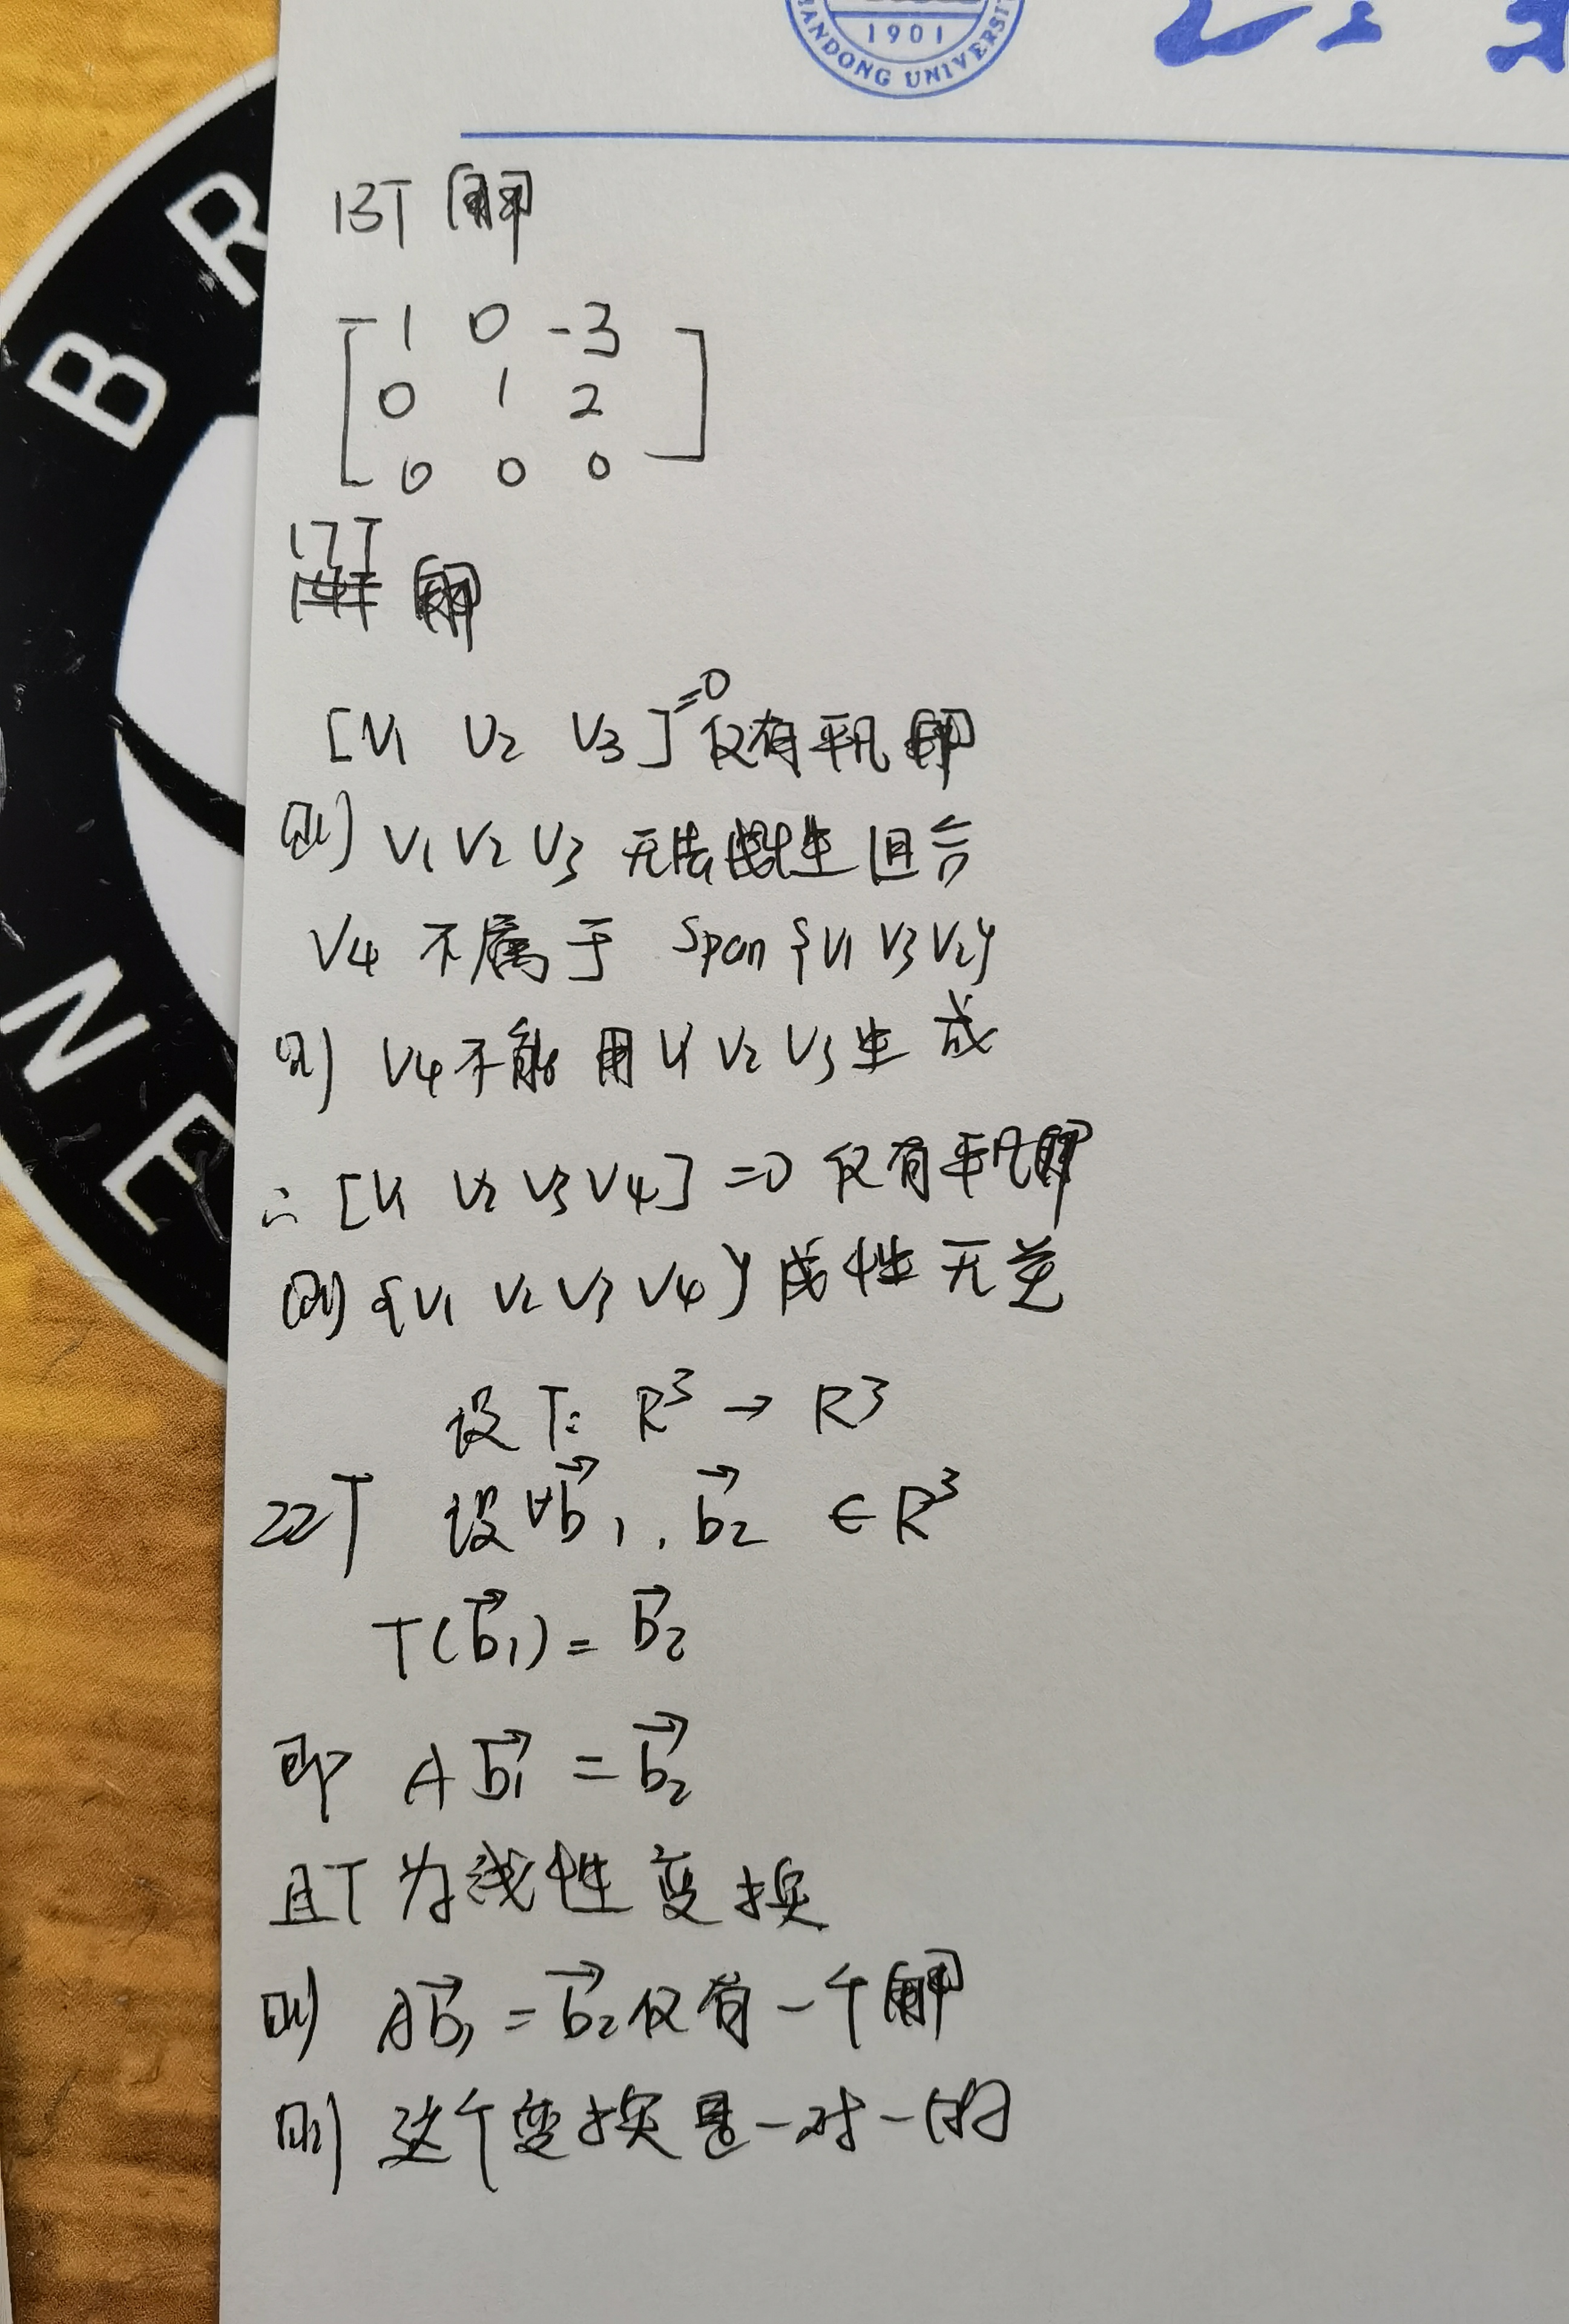 1901
ANDONG UNIVERSI
B R
N E
13T 解
1 0 -3
0 1 2
0 0 0
17T
解
[V1 V2 V3]=0 仅有平凡解
则 V1 V2 V3 无法线性组合
V4 不属于 Span {V1 V3 V2}
则 V4不能用 V1 V2 V3生成
∴ [V1 V2 V3 V4] =0 仅有平凡解
则 {V1 V2 V3 V4} 线性无关
设 T: R³ → R³
22T 设∀b⃗1, b⃗2 ∈ R³
T(b⃗1) = b⃗2
即 A b⃗1 = b⃗2
且T为线性变换
则 Ab⃗1 = b⃗2仅有一个解
则 这个变换是一对一的